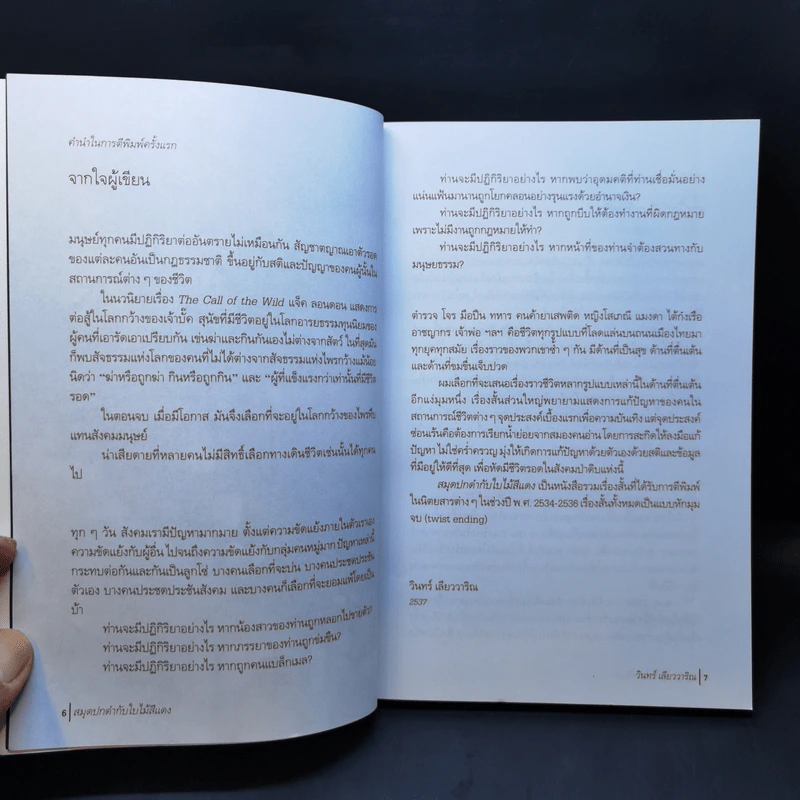 คำนำในการตีพิมพ์ครั้งแรก
จากใจผู้เขียน
มนุษย์ทุกคนมีปฏิกิริยาต่ออันตรายไม่เหมือนกัน สัญชาตญาณเอาตัวรอด
ของแต่ละคนอันเป็นกฎธรรมชาติ ขึ้นอยู่กับสติและปัญญาของคนผู้นั้นใน
สถานการณ์ต่าง ๆ ของชีวิต
ในนวนิยายเรื่อง The Call of the Wild แจ็ค ลอนดอน แสดงการ
ต่อสู้ในโลกกว้างของเจ้าบั๊ค สุนัขที่มีชีวิตอยู่ในโลกอารยธรรมทุนนิยมของ
ผู้คนที่เอารัดเอาเปรียบกัน เช่นฆ่าและกินกันเองไม่ต่างจากสัตว์ ในที่สุดมัน
ก็พบสัจธรรมแห่งโลกของคนที่ไม่ได้ต่างจากสัจธรรมแห่งไพรกว้างแม้น้อย
นิดว่า "ฆ่าหรือถูกฆ่า กินหรือถูกกิน" และ "ผู้ที่แข็งแรงกว่าเท่านั้นที่มีชีวิต
รอด"
ในตอนจบ เมื่อมีโอกาส มันจึงเลือกที่จะอยู่ในโลกกว้างของไพรทึบ
แทนสังคมมนุษย์
น่าเสียดายที่หลายคนไม่มีสิทธิ์เลือกทางเดินชีวิตเช่นนั้นได้ทุกคน
ไป
ทุก ๆ วัน สังคมเรามีปัญหามากมาย ตั้งแต่ความขัดแย้งภายในตัวเราเอง
ความขัดแย้งกับผู้อื่น ไปจนถึงความขัดแย้งกับกลุ่มคนหมู่มาก ปัญหาเหล่านี้
กระทบต่อกันและกันเป็นลูกโซ่ บางคนเลือกที่จะบ่น บางคนประชดประชัน
ตัวเอง บางคนประชดประชันสังคม และบางคนก็เลือกที่จะยอมแพ้โดยเป็น
บ้า
ท่านจะมีปฏิกิริยาอย่างไร หากน้องสาวของท่านถูกหลอกไปขายตัว?
ท่านจะมีปฏิกิริยาอย่างไร หากภรรยาของท่านถูกข่มขืน?
ท่านจะมีปฏิกิริยาอย่างไร หากถูกคนแบล็กเมล?
6 สมุดปกดำกับใบไม้สีแดง
ท่านจะมีปฏิกิริยาอย่างไร หากพบว่าอุดมคติที่ท่านเชื่อมั่นอย่าง
แน่นแฟ้นมานานถูกโยกคลอนอย่างรุนแรงด้วยอำนาจเงิน?
ท่านจะมีปฏิกิริยาอย่างไร หากถูกบีบให้ต้องทำงานที่ผิดกฎหมาย
เพราะไม่มีงานถูกกฎหมายให้ทำ?
ท่านจะมีปฏิกิริยาอย่างไร หากหน้าที่ของท่านจำต้องสวนทางกับ
มนุษยธรรม?
ตำรวจ โจร มือปืน ทหาร คนค้ายาเสพติด หญิงโสเภณี แมงดา ไต้ก๋งเรือ
อาชญากร เจ้าพ่อ ฯลฯ คือชีวิตทุกรูปแบบที่โลดแล่นบนถนนเมืองไทยมา
ทุกยุคทุกสมัย เรื่องราวของพวกเขาซ้ำ ๆ กัน มีด้านที่เป็นสุข ด้านที่ตื่นเต้น
และด้านที่ขมขื่นเจ็บปวด
ผมเลือกที่จะเสนอเรื่องราวชีวิตหลากรูปแบบเหล่านี้ในด้านที่ตื่นเต้น
อีกแง่มุมหนึ่ง เรื่องสั้นส่วนใหญ่พยายามแสดงการแก้ปัญหาของคนใน
สถานการณ์ชีวิตต่าง ๆ จุดประสงค์เบื้องแรกเพื่อความบันเทิง แต่จุดประสงค์
ซ่อนเร้นคือต้องการเรียกน้ำย่อยจากสมองคนอ่าน โดยการสะกิดให้ลงมือแก้
ปัญหา ไม่ใช่คร่ำครวญ มุ่งให้เกิดการแก้ปัญหาด้วยตัวเองด้วยสติและข้อมูล
ที่มีอยู่ให้ดีที่สุด เพื่อหัดมีชีวิตรอดในสังคมป่าดิบแห่งนี้
สมุดปกดำกับใบไม้สีแดง เป็นหนังสือรวมเรื่องสั้นที่ได้รับการตีพิมพ์
ในนิตยสารต่าง ๆ ในช่วงปี พ.ศ. 2534-2536 เรื่องสั้นทั้งหมดเป็นแบบหักมุม
จบ (twist ending)
วินทร์ เลียววาริณ
2537
วินทร์ เลียววาริณ 7